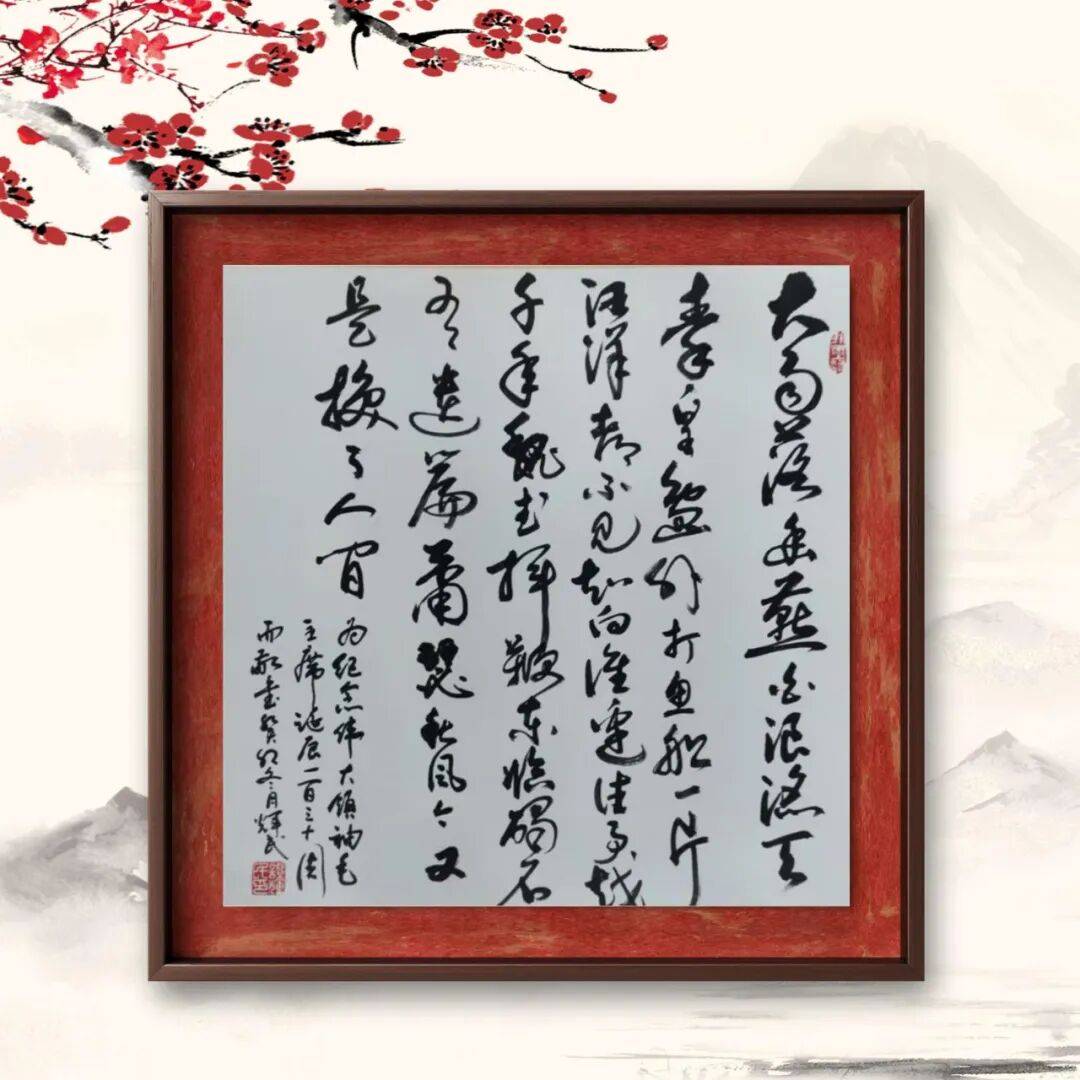 大雨落幽燕白浪滔天
秦皇岛外打鱼船一片
汪洋都不见知向谁边往事越
千年魏武挥鞭东临碣石
有遗篇萧瑟秋风今又
是换了人间
为纪念伟大领袖毛
主席诞辰一百三十周
而敬书癸卯冬月辉民